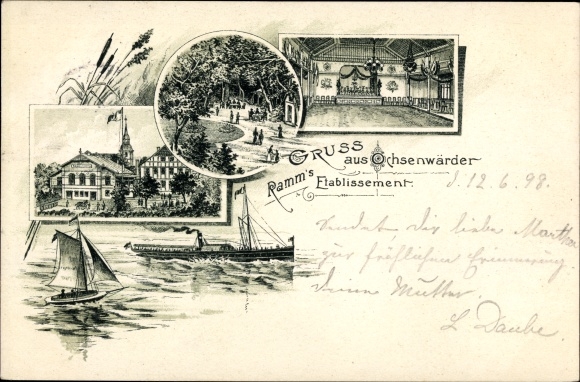 Gruss aus Ochsenwärder
Ramm's Etablissement.
d. 12.6.98.
sendet dir liebe Martha
zur fröhlichen Erinnerung
deine Mutter
L Daube